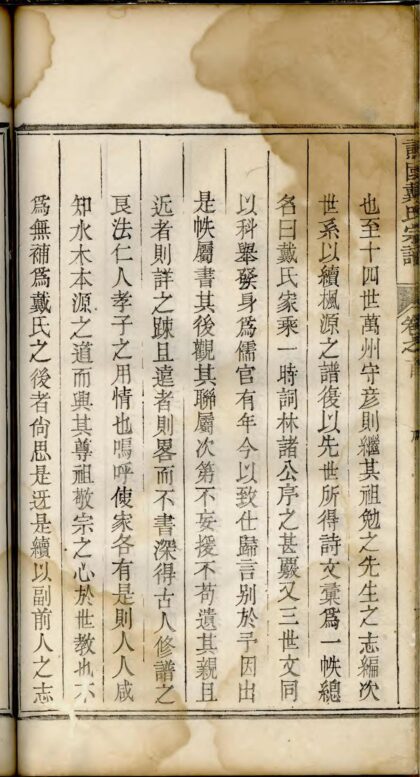 也至十四世萬州守彥則繼其祖勉之先生之志編次
世系以續楓源之譜復以先世所得詩文彙爲一帙總
名曰戴氏家乘一時詞林諸公序之甚覈又三世文同
以科舉發身爲儒官有年今以致仕歸言別於予因出
是帙屬書其後觀其聯屬次第不妄援不茍遺其親且
近者則詳之踈且遠者則畧而不書深得古人修譜之
良法仁人孝子之用情也嗚呼使家各有是則人人咸
知水木本源之道而興其尊祖敬宗之心於世教也不
爲無補爲戴氏之後者尙思是迓是續以副前人之志
戴氏宗譜